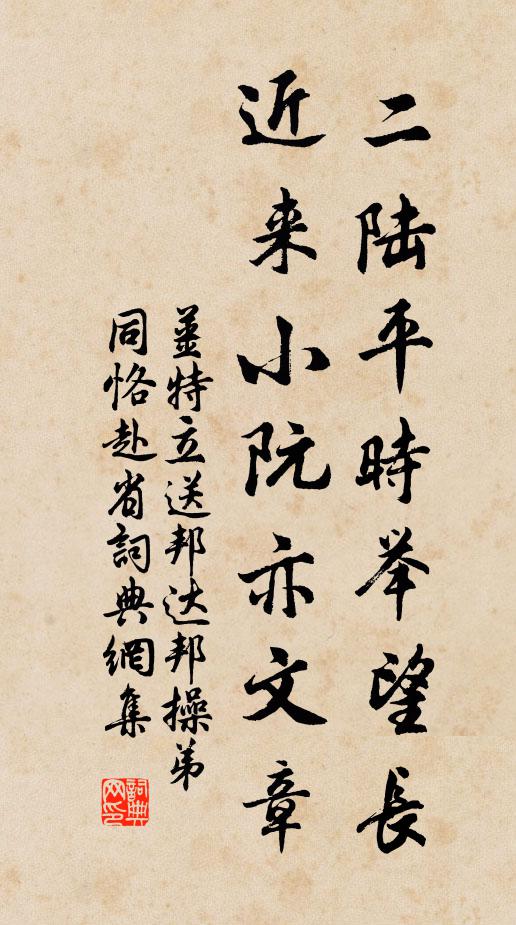 二陆平時举望長
近来小阮亦文章
姜特立送邦达邦操弟
同恪赴省詞典網集
詞典网印